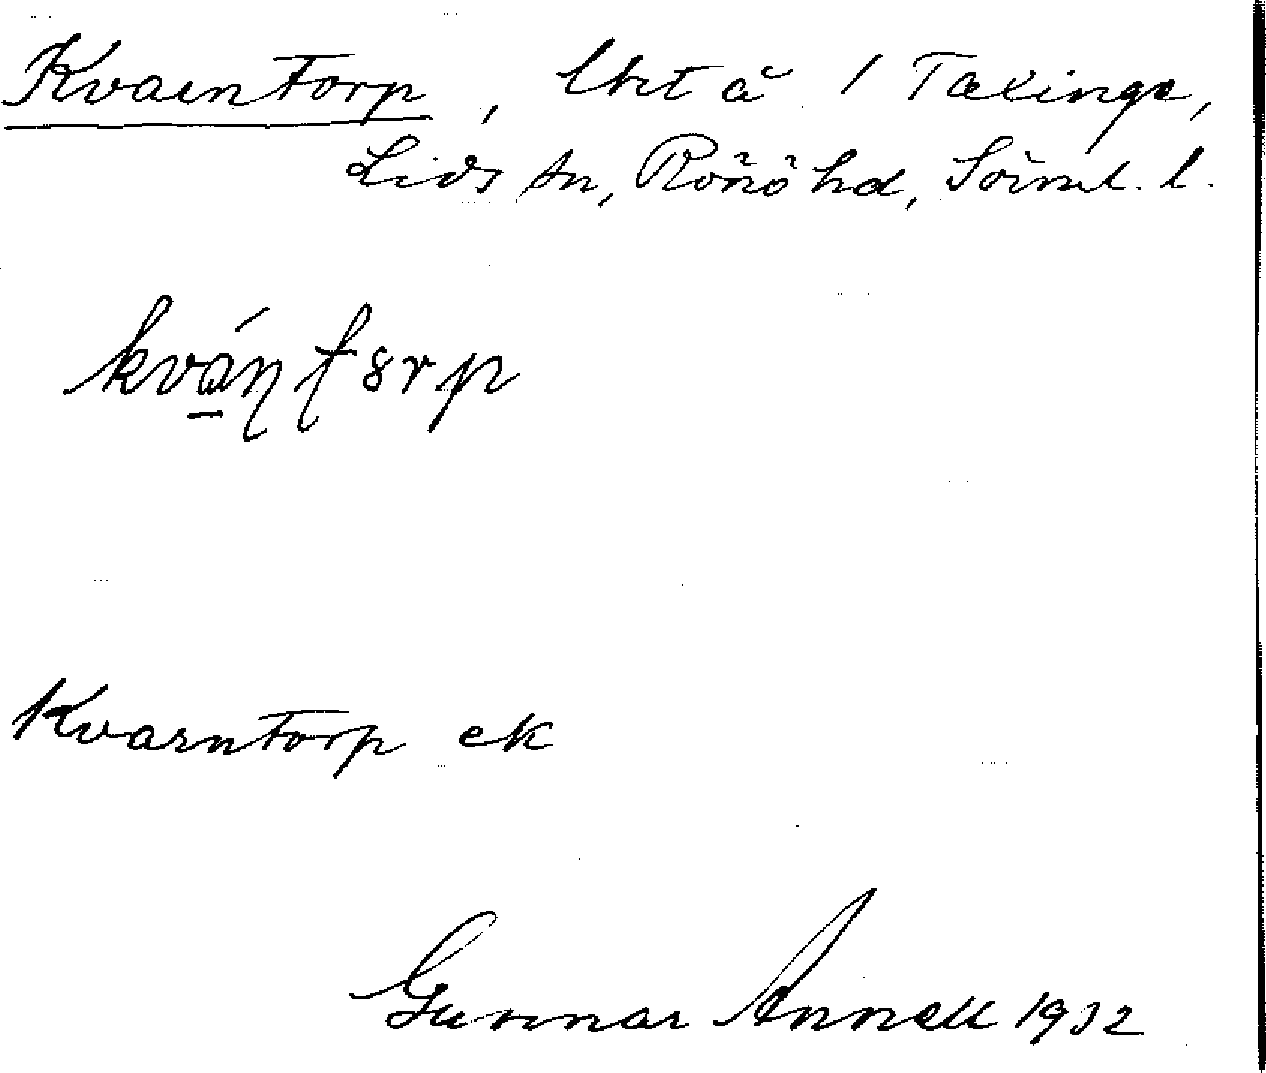 Kvarntorp, lht å 1 Taxinge,
Lids sn, Rönö hd, Sörml. l.
kvá̱ɳʈ8rp
Kvarntorp ek
Gunnar Annell 1932